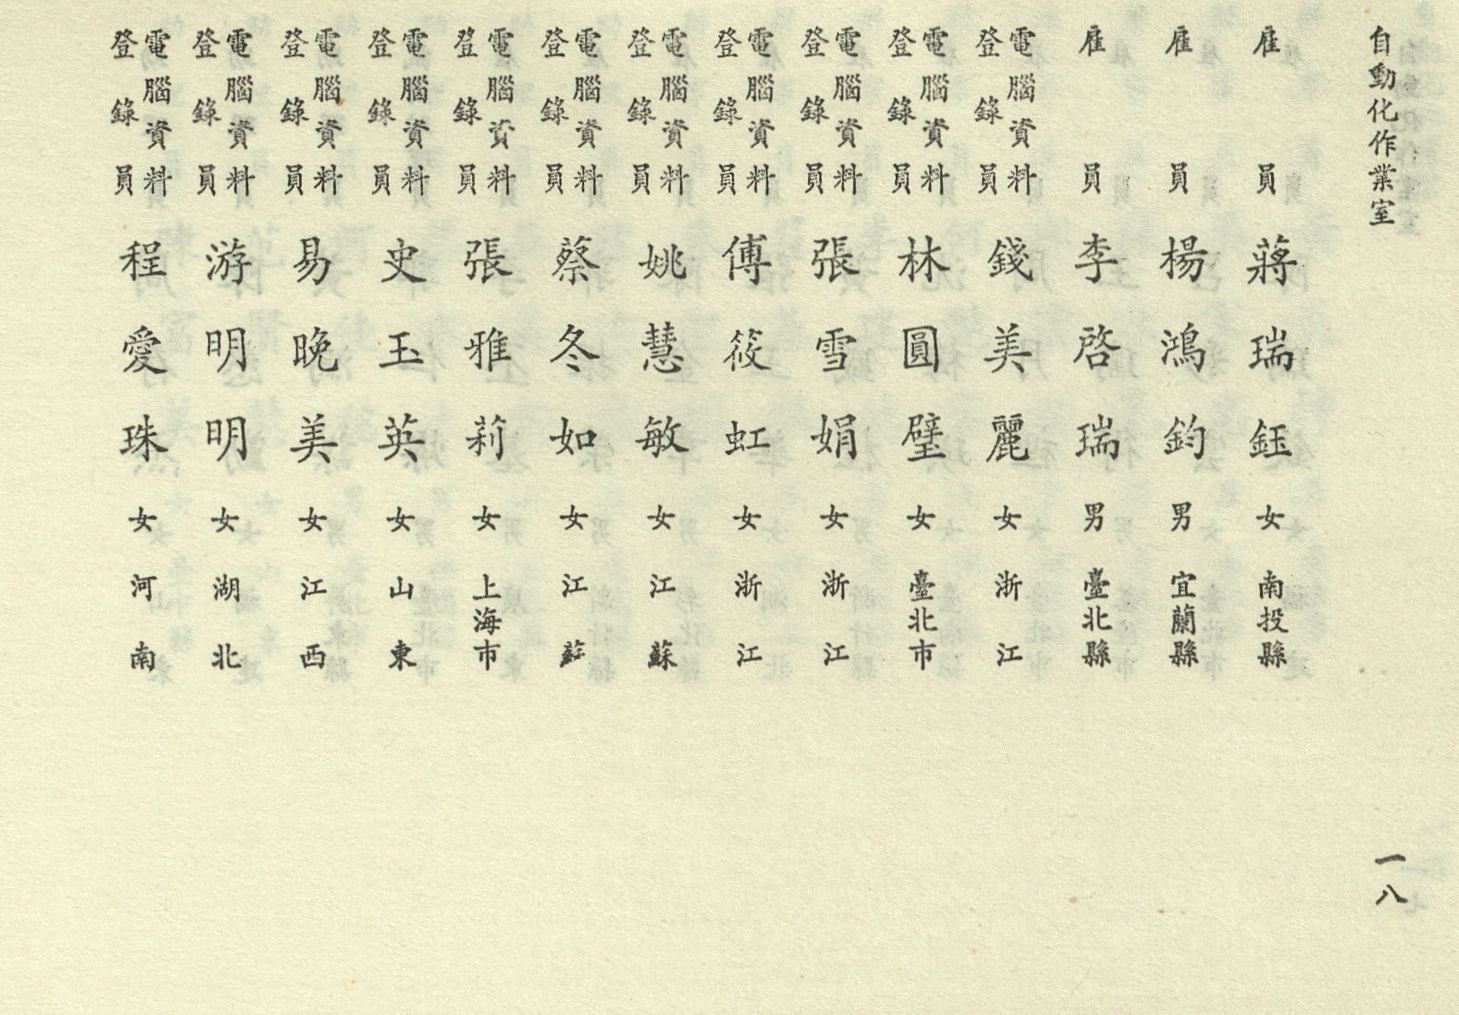 自動化作業室
一八
雇員 蔣瑞鈺 女 南投縣
雇員 楊鴻鈞 男 宜蘭縣
雇員 李啓瑞 男 臺北縣
電腦資料登錄員 錢美麗 女 浙江
電腦資料登錄員 林圓璧 女 臺北市
電腦資料登錄員 張雪娟 女 浙江
電腦資料登錄員 傅筱虹 女 浙江
電腦資料登錄員 姚慧敏 女 江蘇
電腦資料登錄員 蔡冬如 女 江蘇
電腦資料登錄員 張雅莉 女 上海市
電腦資料登錄員 史玉英 女 山東
電腦資料登錄員 易晚美 女 江西
電腦資料登錄員 游明明 女 湖北
電腦資料登錄員 程愛珠 女 河南